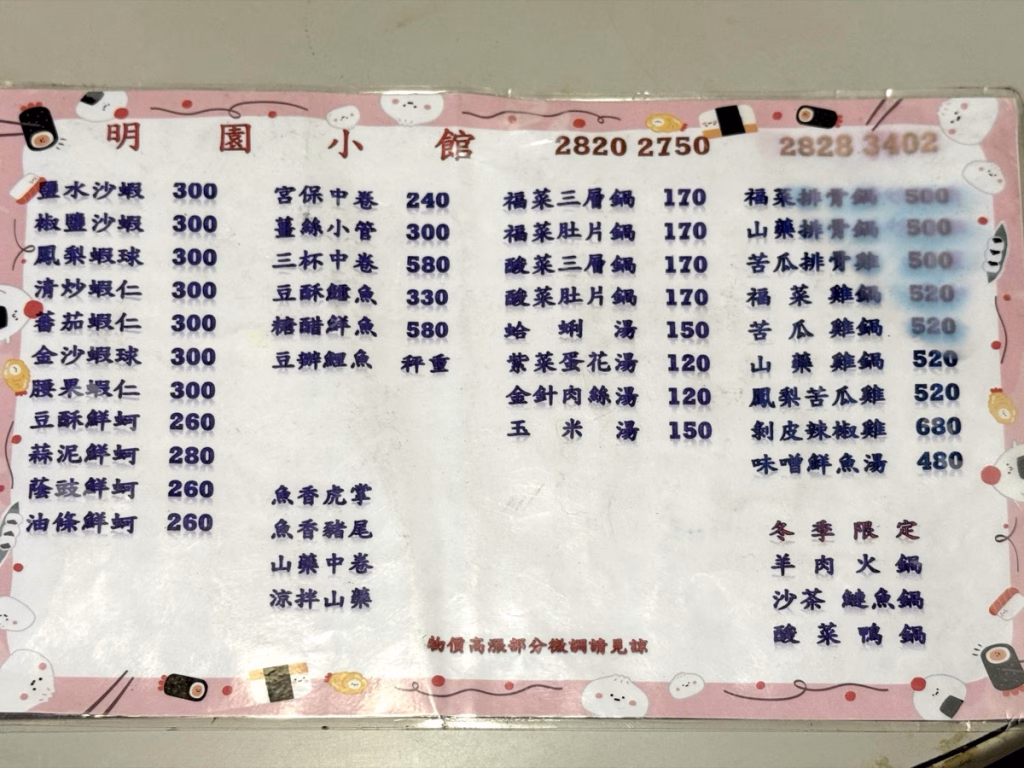 明園小館 2820 2750 2828 3402
鹽水沙蝦 300
椒鹽沙蝦 300
鳳梨蝦球 300
清炒蝦仁 300
蕃茄蝦仁 300
金沙蝦球 300
腰果蝦仁 300
豆酥鮮蚵 260
蒜泥鮮蚵 280
蔭豉鮮蚵 260
油條鮮蚵 260
宮保中卷 240
薑絲小管 300
三杯中卷 580
豆酥鱈魚 330
糖醋鮮魚 580
豆瓣鯉魚 秤重
魚香虎掌
魚香豬尾
山藥中卷
涼拌山藥
福菜三層鍋 170
福菜肚片鍋 170
酸菜三層鍋 170
酸菜肚片鍋 170
蛤蜊湯 150
紫菜蛋花湯 120
金針肉絲湯 120
玉米湯 150
福菜排骨鍋 500
山藥排骨鍋 500
苦瓜排骨雞 500
福菜雞鍋 520
苦瓜雞鍋 520
山藥雞鍋 520
鳳梨苦瓜雞 520
剝皮辣椒雞 680
味噌鮮魚湯 480
冬季限定
羊肉火鍋
沙茶鰱魚鍋
酸菜鴨鍋
物價高漲部分微調請見諒